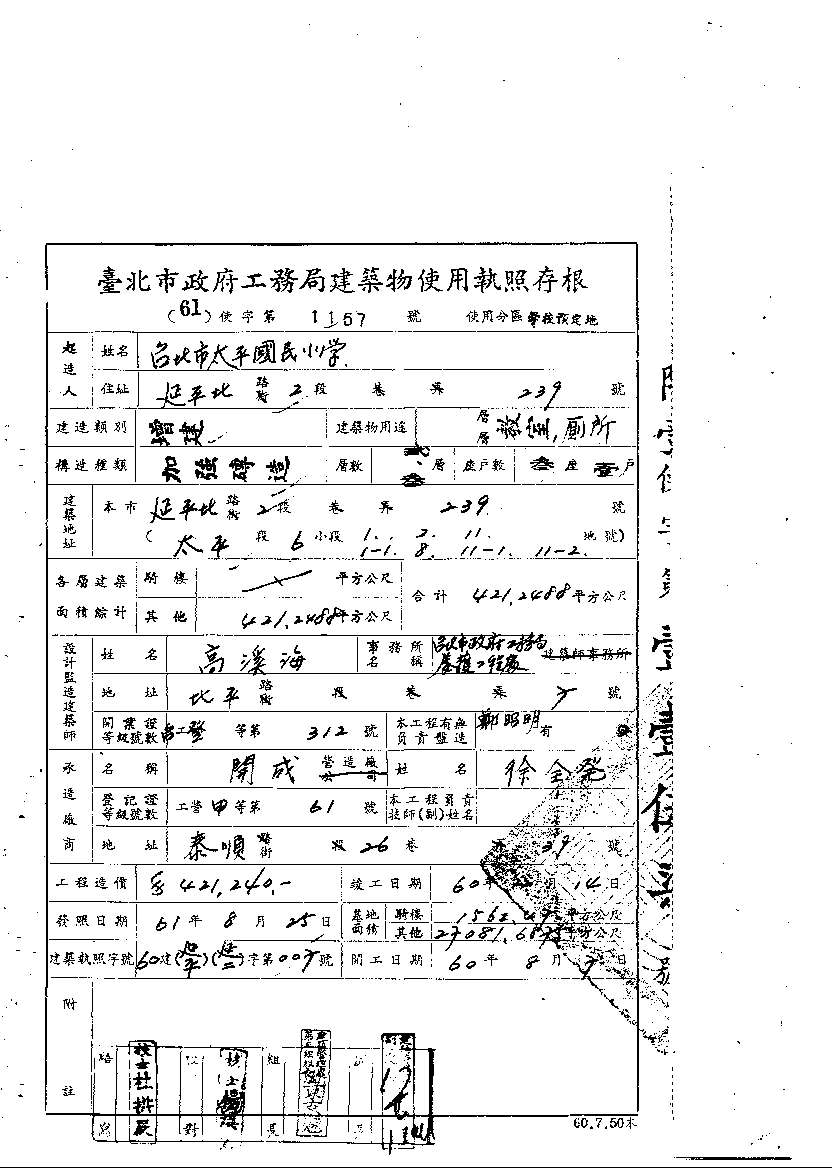 臺北市政府工務局建築物使用執照存根
(61)使字第 1157 號 使用分區學校預定地
起造人 姓名 台北市太平國民小学
住址 延平北 路街 2 段 巷 弄 239 號
建造類別 增建 建築物用途 層層 教室,厠所
構造種類 加強磚造 層數 層 座戶數 叁座 壹戶
建築地址 本市 延平北 路街 2段 巷 弄 239 號
(太平 段 6 小段 1. 2. 11. 地號)
1-1. 8. 11-1. 11-2.
各層建築面積餘計 騎樓 平方公尺 合計 421.2488平方公尺
其他 421.2488平方公尺
設計監造建築師 姓名 高溪海 事務所名稱 台北市政府工務局養護工程處 建築師事務所
地址 北平 路街 段 巷 弄 號
開業證等級號數 等第 312 號 本工程有無負責監造 鄭昭明 有
承造廠商 名稱 開成 營造廠公司 姓名 徐金發
登記證等級號數 工營 甲 等第 61 號 本工程負責技師(副)姓名
地址 泰順 路街 段 26 巷 弄 39 號
工程造價 421,240.- 竣工日期 60年 月 14日
發照日期 61年 8月 25日 基地面積 騎樓 平方公尺
其他 平方公尺
建築執照字號 60建( )( )字第 號 開工日期 60年 8月 日
附註
組長
校對
60.7.50本